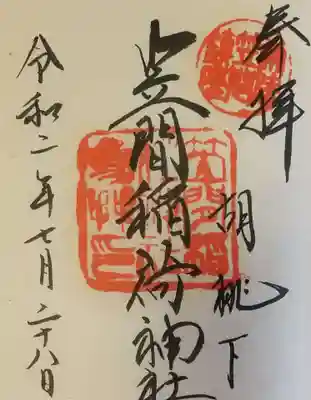 奉拝
胡桃下
笠間稲荷神社
令和二年七月二十八日